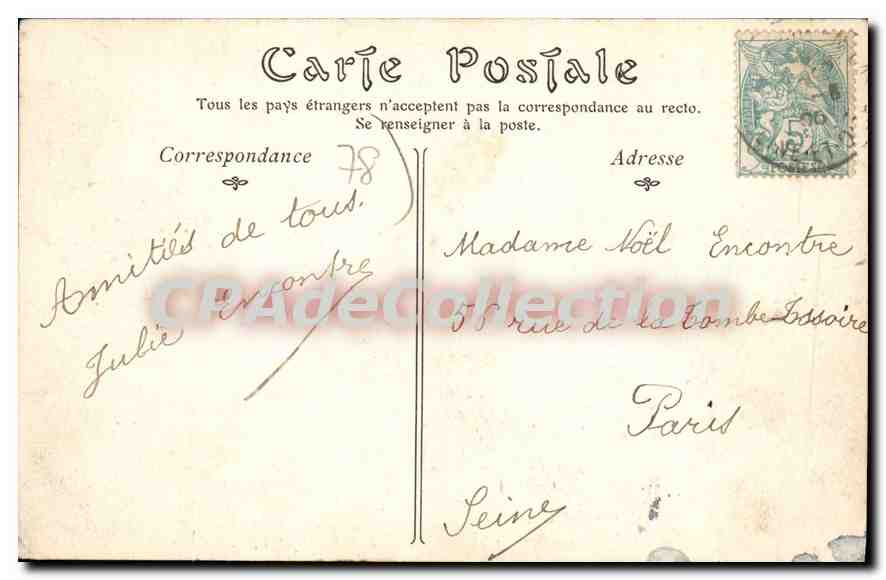 Carte Postale
Tous les pays étrangers n'acceptent pas la correspondance au recto.
Se renseigner à la poste.
Correspondance
78
Adresse
Amitiés de tous.
Julie Encontre
Madame Noël Encontre
58 rue de la Tombe-Issoire
Paris
Seine
CPAdeCollection
5